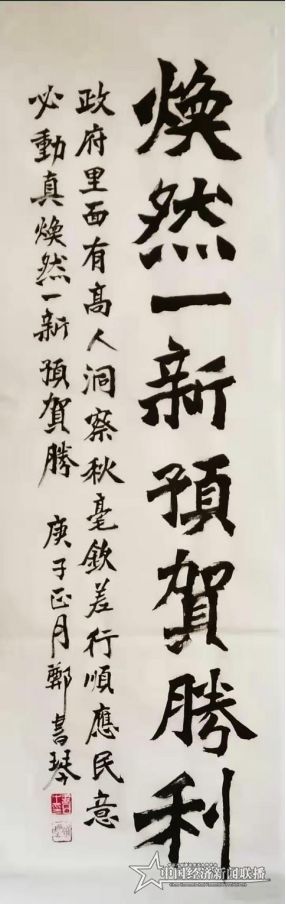 煥然一新預賀勝利
政府里面有高人洞察秋毫欽差行順應民意
必動真煥然一新預賀勝 庚子正月鄭書琴
中国经济新闻联播